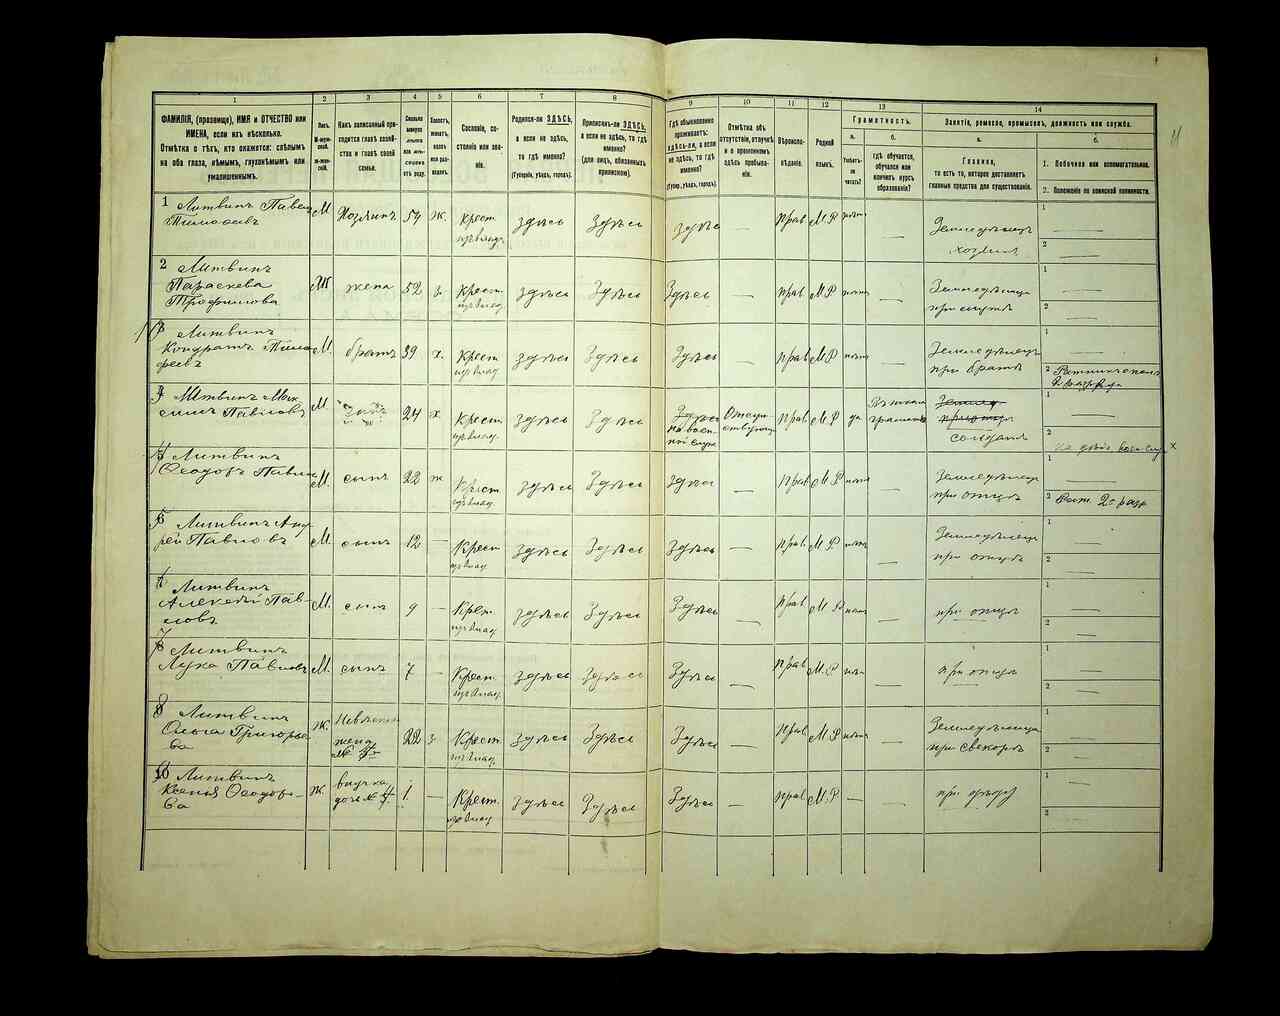 1 2 3 4 5 6 7 8 9 10 11 12 13 14
ФАМИЛІЯ, (прозвище), ИМЯ и ОТЧЕСТВО или
ИМЕНА, если ихъ нѣсколько.
Отмѣтка о тѣхъ, кто окажется: слѣпымъ
на оба глаза, нѣмымъ, глухонѣмымъ или
умалишеннымъ.
Полъ.
М-мужской.
Ж-женскій.
Какъ записанный при-
ходится главѣ хозяй-
ства и главѣ своей
семьи.
Сколько
минуло
лѣтъ
или мѣсяцевъ
отъ роду.
Холостъ,
женатъ,
вдовъ
или раз-
веденъ.
Сословіе, со-
стояніе или зва-
ніе.
Родился-ли ЗДѢСЬ,
а если не здѣсь,
то гдѣ именно?
(Губернія, уѣздъ, городъ).
Приписанъ-ли ЗДѢСЬ,
а если не здѣсь, то гдѣ
именно?
(для лицъ, обязанныхъ
припискою).
Гдѣ обыкновенно
проживаетъ:
здѣсь-ли, а если
не здѣсь, то гдѣ
именно?
(Губер., уѣздъ, городъ).
Отмѣтка объ
отсутствіи, отлучкѣ
и о временномъ
здѣсь пребыва-
ніи.
Вѣроиспо-
вѣданіе.
Родной
языкъ.
Грамотность.
а.
Умѣетъ-
ли
читать?
б.
гдѣ обучается,
обучался или
кончилъ курсъ
образованія?
Занятіе, ремесло, промыселъ, должность или служба.
а.
Главное,
то есть то, которое доставляетъ
главныя средства для существованія.
б.
1. Побочное или вспомогательное.
2. Положеніе по воинской повинности.
1 Литвинъ Павелъ
Тимофеевъ
М Хозяинъ 57 Ж. Крест.
Здѣсь Здѣсь Здѣсь — Прав М.Р — Земледѣлецъ
хозяинъ
1
2
2 Литвинъ
Параскева
Трофимова
Ж жена 52 з. Крест.
Здѣсь Здѣсь Здѣсь — Прав М.Р — Земледѣлица
при мужѣ
1
2
3 Литвинъ
Кондратъ Тимо
феевъ
М. братъ 39 х. Крест
Здѣсь Здѣсь Здѣсь — Прав М.Р — Земледѣлецъ
при братѣ
1
2
Литвинъ Мак
симъ Павловъ
М. 24 х Крест
Здѣсь Здѣсь Здѣсь
на воен
ной служ
Отсут
ствующ
Прав М.Р да
солдатъ
1
2
Литвинъ
Ѳеодоръ Павло
М. сынъ 22 ж Крест
Здѣсь Здѣсь Здѣсь — Прав М.Р — Земледѣлецъ
при отцѣ
1
2 2 разр
Литвинъ Анд
рей Павловъ
М. сынъ 12 — Крест
Здѣсь Здѣсь Здѣсь — Прав М.Р — Земледѣлецъ
при отцѣ
1
2
Литвинъ
Алексѣй Пав-
ловъ
М. сынъ 9 — Крест.
Здѣсь Здѣсь Здѣсь — Прав М.Р — при отцѣ
1
2
Литвинъ
Лука Павловъ
М. сынъ 7 — Крест.
Здѣсь Здѣсь Здѣсь — Прав М.Р — при отцѣ
1
2
Литвинъ
Ольга Григорье
ва
Ж. Невѣстка
жена
22 з. Крест.
Здѣсь Здѣсь Здѣсь — Прав М.Р — Земледѣлица
при свекорѣ
1
2
10 Литвинъ
Ксенья Ѳеодоро-
ва
Ж. внучка
дочь 1 — Крест.
Здѣсь Здѣсь Здѣсь — Прав М.Р — — при
1
2